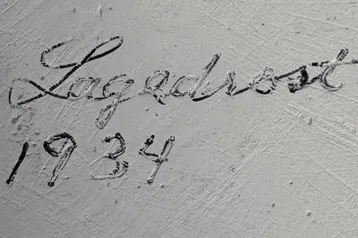 Lagadrost
1934